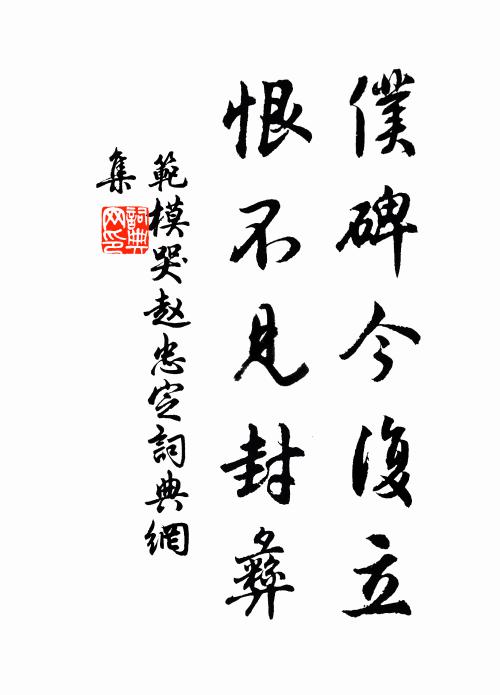 僕碑今復立
恨不見封彝
範模哭赵忠定詞典網
集
詞典网印